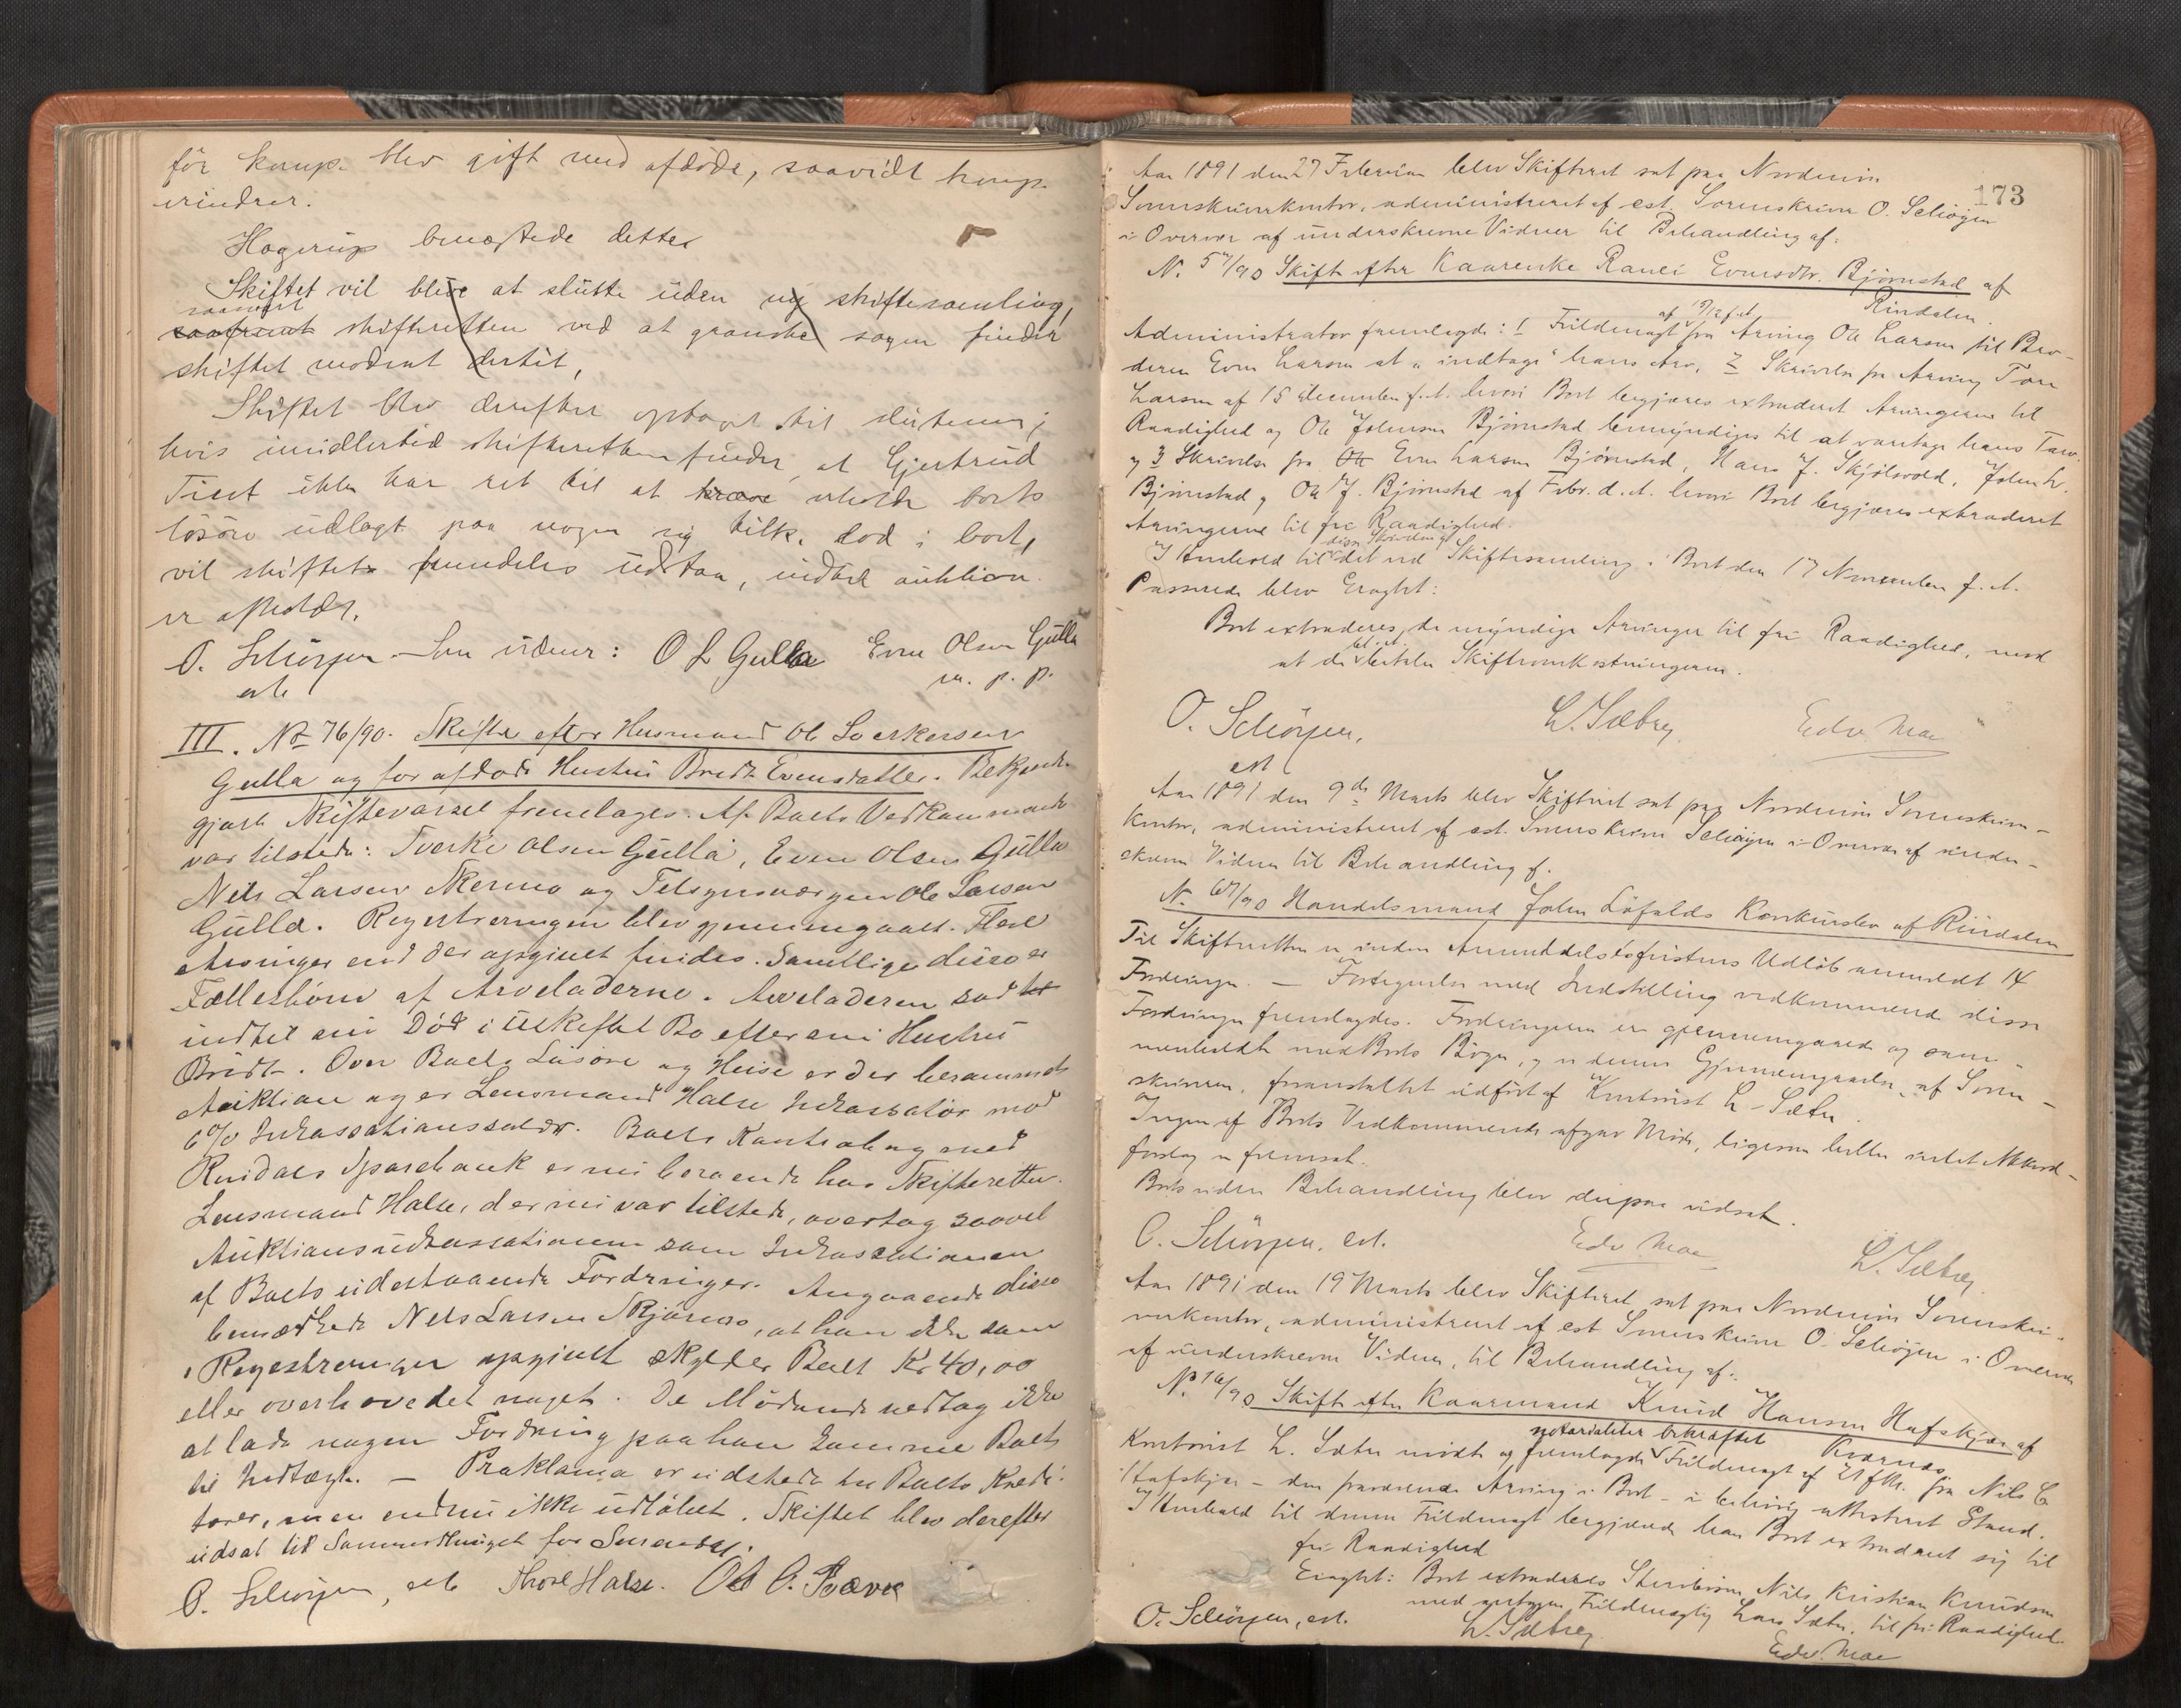 för komp. blev gift med afdöde, saavidt komp.
erindrer.
Hagerup benegtede dette.
Skiftet vil blive at slutte uden ny skiftesamling,
saavidt
saafremt skifteretten ved at granske sagen finder
skiftet modent dertil,
Skiftet blev derefter optaget til slutning;
hvis imidlertid skifteretten finder, at Gjertrud
ikke har ret til at kræve erholde boets
lösöre udlagt paa nogen sig tilk. lod i boet,
vil skiftet fremdeles udstaa, indtil auktion
er afholdt.
O. Schiörgen. Som vidner: O L Gulla Even Olsen Gulla
est m. p. p.
III. No 76/90. Skifte efter Husmand Ole Sverkersen
Gulla og før afdøde Hustru Bredt Evensdatter. Bekjendt-
gjort Skiftevarsel fremlages. Af Boets Vedkommende
var tilstede: Sverke Olsen Gulla, Even Olsen Gulla
Nels Larsen Skermo og Tilsynsværgen Ole Larsen
Gulla. Registreringen blev gjennemgaaet. Flere
Arvinger end der opgivet findes. Samtlige disse er
Fællesbörn af Arveladerne. Arveladeren sad
indtil sin Död i uskiftet Bo efter sin Hustru
Bredt. Over Boets Lösöre og Huse er der berammet
Auktion og er Lensmand Halse Inkassator mod
6% Inkassationssalær. Boets Kontrabog med
Rindals Sparebank er nu beroende hos Skifteretten.
Lensmand Halse, der nu var tilstede, overtog saavel
Auktionsinkassationen som Inkassationen
af Boets udestaaende Fordringer. Angaaende disse
bemærkede Nels Larsen Skjermo, at han ikke som
i Registreringen opgivet skylder Boet Kr 40,00
eller overhovedet noget. De Mödende vedtog ikke
at lade nogen Fordring paa ham komme Boet
til Indtægt. — Proklama er udstedt til Boets Kredi-
torer, men endnu ikke udlöbet. Skiftet blev derefter
udsat til Sammenthinget for Surendal.
O. Schiörgen, est Thore Halse. Ole O. Bæver
173
Aar 1891 den 27 Februar blev Skifteret sat paa Nordmör
Sorenskriverkontor, administreret af cst. Sorenskriver O. Schiörgen
i Overvær af underskrevne Vidner til Behandling af:
N. 57/90 Skifte efter Kaarenke Ranei Evensdtr. Björnstad af
Rindalen.
af 17/12 f. A.
Administrator fremlagde: 1 Fuldmagt fra Arving Ole Larsen til Bro-
deren Even Larsen at "indtage" hans Arv, 2 Skrivelse fra Arving Tore
Larsen af 15 december f. A. hvori Boet begjæres extraderet Arvingerne til
Raadighed og Ole Johnsen Björnstad bemyndiges til at varetage hans Tarv
og 3 Skrivelse fra Ole Even Larsen Björnstad, Hans J. Skjölsvold, John L.
Björnstad og Ole J. Björnstad af Febr. d. A. hvori Boet begjæres extraderet
Arvingerne til fri Raadighed.
disse Skrivelser og
I Henhold til det ved Skiftesamling i Boet den 17 November f. A.
Passerede blev Eragtet:
Boet extraderes de myndige Arvinger til fri Raadighed, mod
at de betaler Skifteomkostningerne.
O. Schiörgen, L. Sæbrey Edv. Moe
est
Aar 1891 den 9de Marts blev Skifteret sat paa Nordmör Sorenskriver-
kontor, administreret af cst. Sorenskriver Schiörgen i Overvær af under-
skrevne Vidner til Behandling af.
N. 67/90 Handelsmand John Löfalds Konkursbo af Rindalen
Til Skifteretten er inden Anmeldelsesfristens Udlöb anmeldt 14
Fordringer. — Fortegnelse med Indstilling vedkommende disse
Fordringer fremlagdes. Fordringerne er gjennemgaaede og sam-
menholdte med Boets Böger, og er denne Gjennemgaaelse, af Soren-
skriveren, foranstaltet udfört af Kontorist L. Sæter
Ingen af Boets Vedkommende afgav Möde, ligesom heller intet Akkord-
forslag er fremsat.
Boets videre Behandling blev derpaa udsat.
O. Schiörgen, cst. Edv. Moe L. Sæbrey
Aar 1891 den 19 Marts blev Skifteret sat paa Nordmör Sorenskri-
verkontor, administreret af cst Sorenskriver O. Schiörgen i Overvær
af underskrevne Vidner, til Behandling af:
N. 16/90 Skifte efter Kaarmand Knud Hansen Hafskjær af
Kværnes
notarialiter bekræftet
Kontorist L. Sæter mödte og fremlagde Fuldmagt af 21 f.M. fra Nils C
Hafskjær - den fraværende Arving i Boet - i behörig attesteret Stand.
I Henhold til denne Fuldmagt begjærede han Boet extraderet sig til
fri Raadighed
Eragtet: Boet extraderes Nils Kristian Knudsen
med antagen Fuldmægtig Lars Sæter, til fri Raadighed.
O. Schiörgen, cst. L. Sæbrey Edv. Moe